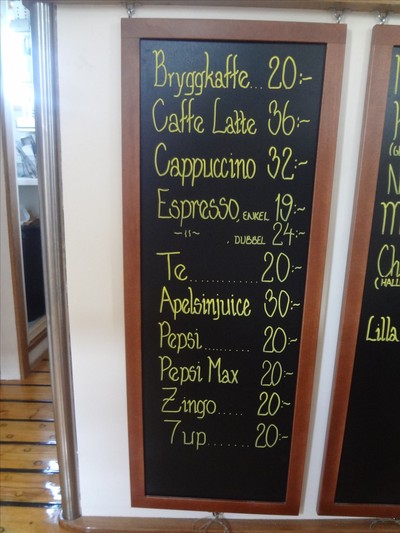 Bryggkaffe... 20:-
Caffe Latte 36:-
Cappuccino 32:-
Espresso, ENKEL 19:-
-"- . DUBBEL 24:-
Te ........... 20:-
Apelsinjuice 30:-
Pepsi........ 20:-
Pepsi Max 20:-
Zingo..... 20:-
7up....... 20:-
Ch
(HALL
Lilla